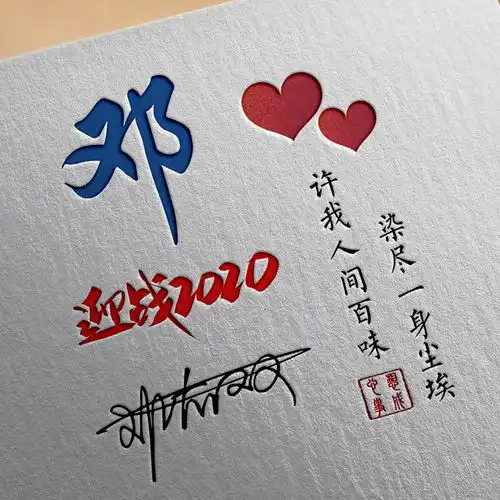 邓
迎战2020
许我人间百味
染尽一身尘埃
心想事成